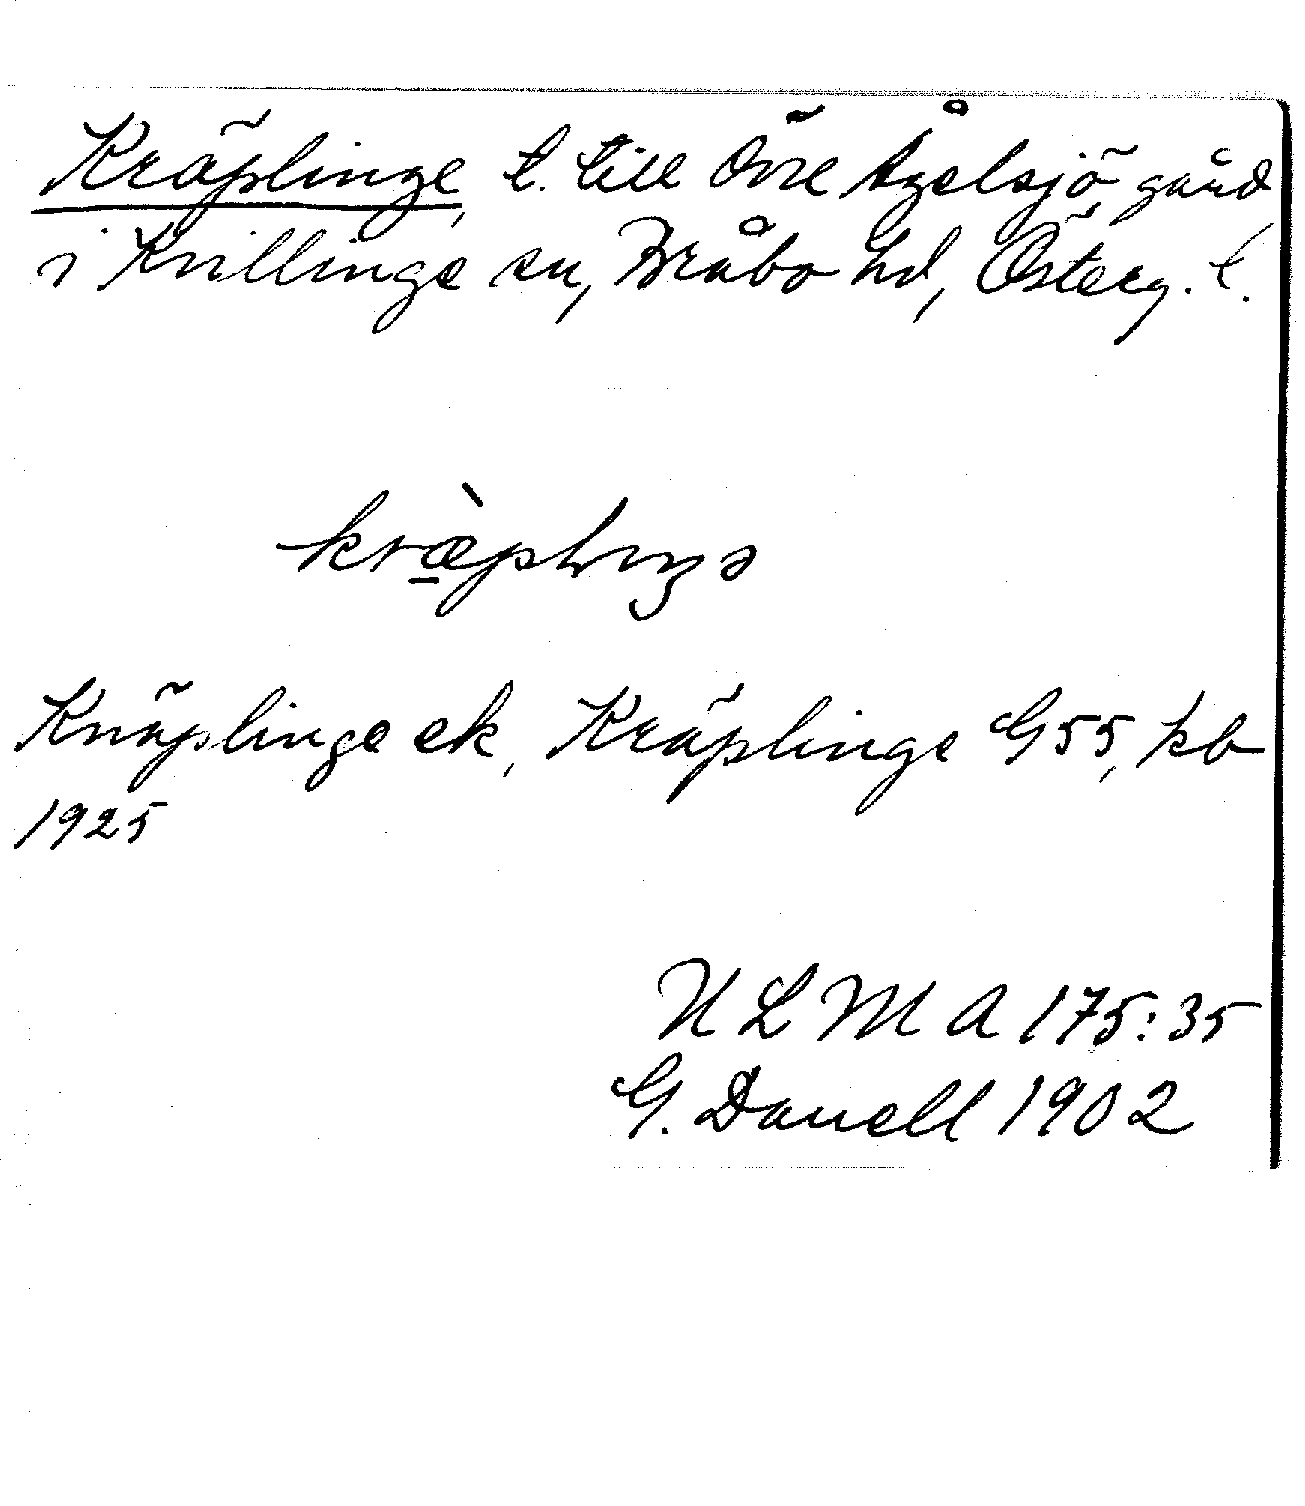 Kräplinge, t. till Övre Ågelsjö, gård
i Kvillinge sn, Bråbo hd, Österg. l.
kræ̠̀plıŋə
Knäplinge ek, Kräplinge G55, kb
1925
ULMA 175:35
G. Danell 1902